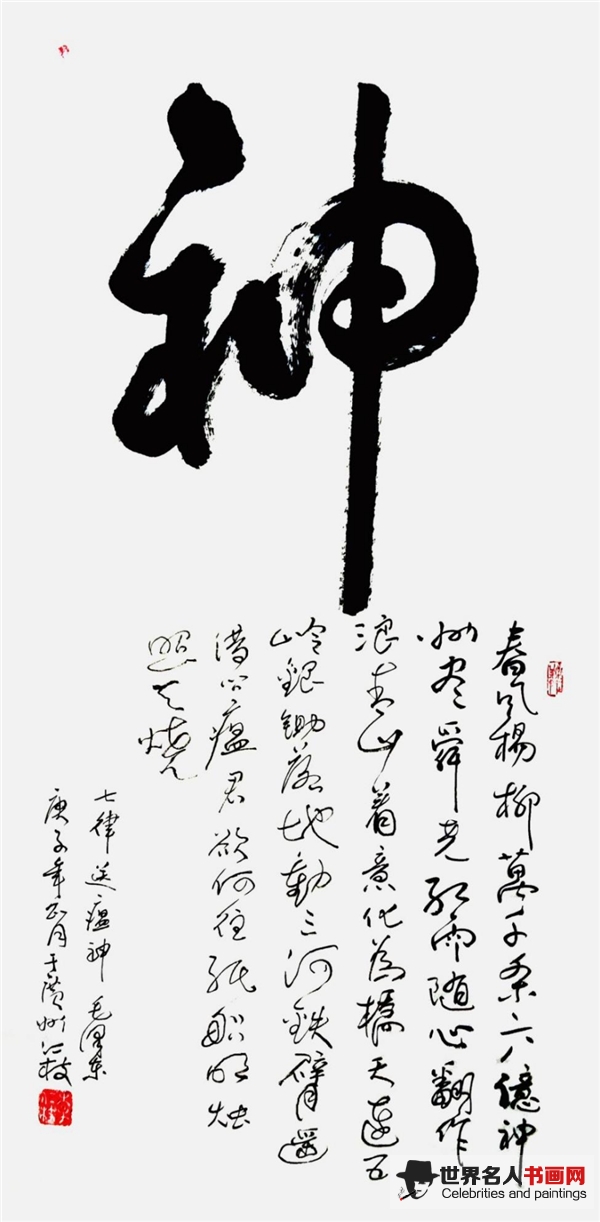 神
春风杨柳萬千条六億神
州尽舜尧红雨随心翻作
浪青山着意化為橋天连五
岭銀锄落地動三河鉄臂遥
借问瘟君欲何往纸船明烛
照天烧
七律送瘟神 毛泽东
庚子年正月于廣州
世界名人书画网
Celebrities and paintings